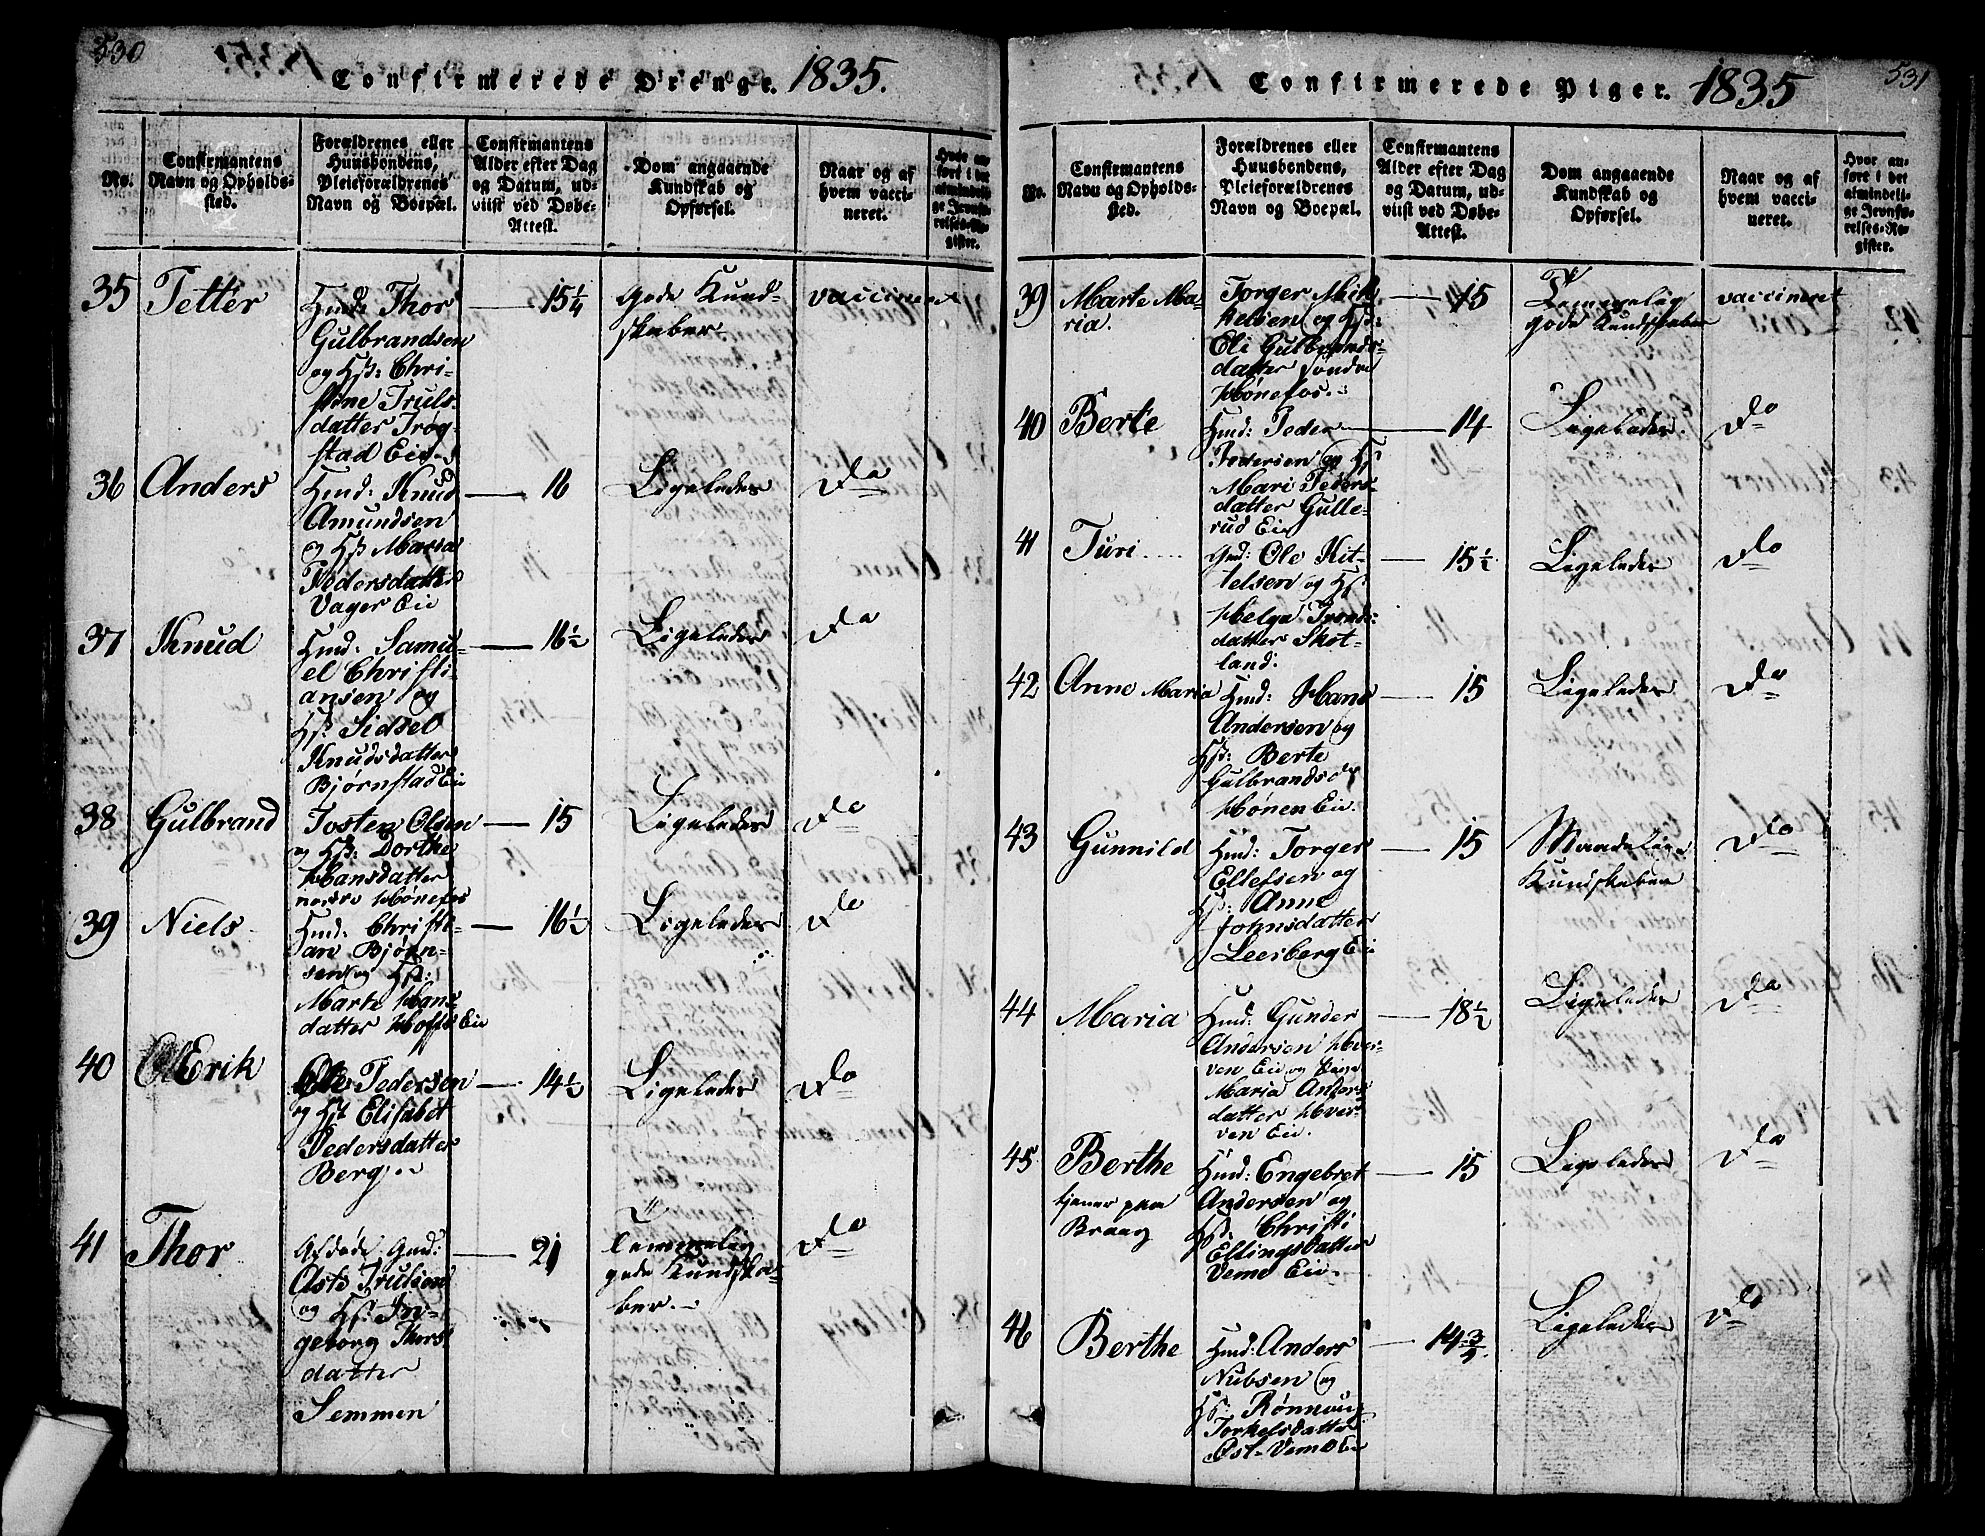 530
Confirmerede Drenge. 1835.
No.
Confirmantens
Navn og Opholds-
sted.
Forældrenes eller
Huusbondens,
Pleieforældrenes
Navn og Boepæl.
Confirmantens
Alder efter Dag
og Datum, ud-
viist ved Døbe-
Attest.
Dom angaaende
Kundskab og
Opførsel.
Naar og af
hvem vacci-
neret.
Hvor an-
ført i det
almindeli-
ge Jevnfø-
relses-Re-
gister.
35 Petter
Hmd: Thor
Gulbrandsen
og Hst: Chri-
stine Truls
datter Trøg-
stad Eie
15 1/4
Gode Kund-
skaber
vaccineret
36 Anders
Hmd: Knud
Amundsen
og Hst Maria
Pedersdatter
Vager Eie
16
Ligeledes
Do
37 Knud
Hmd: Samu-
el Christi-
ansen og
Hst: Sidsel
Knudsdatter
Bjørnstad Eie
16 1/2
Ligeledes
Do
38 Gulbrand
Tosten Olsen
og Hst: Dorthe
Hansdatter
nordre Hønefos
15
Ligeledes
Do
39 Niels
Hmd: Christi-
an Bjørn-
sen og Hst:
Marte Hans
datter Hofs Eie
16 1/2
Ligeledes
Do
40 Erik
Ole Pedersen
og Hst Elisabet
Pedersdatter
Berg
14 1/2
Ligeledes
Do
41 Thor
Afdøde Gmd:
Asts Trulsen
og Hst: In-
geborg Thors
datter
Semmen
21
Temmelig
gode Kundska-
ber
Do
531
Confirmerede Piger. 1835
No.
Confirmantens
Navn og Opholds-
sted.
Forældrenes eller
Huusbondens,
Pleieforældrenes
Navn og Boepæl.
Confirmantens
Alder efter Dag
og Datum, ud-
viist ved Døbe-
Attest.
Dom angaaende
Kundskab og
Opførsel.
Naar og af
hvem vacci-
neret.
Hvor an-
ført i det
almindeli-
ge Jevnfø-
relses-Re-
gister.
39 Marte Ma-
ria.
Torger Mik
kelsen og Hst:
Eli Gulbrands-
datter søndre
Hønefos.
15
Temmelig
gode Kundskaber
vaccineret
40 Berte
Hmd: Peder
Pedersen og Hst
Mari Peders
datter Gulle-
rud Eie
14
Ligeledes
Do
41 Turi
Gmd: Ole Kit-
telsen og Hst
Helga Tronds-
datter Skot-
land.
15 1/2
Ligeledes
Do
42 Anne Maria
Hmd: Hans
Andersen og
Hst: Berte
Gulbrandsdr
Hønen Eie.
15
Ligeledes
Do
43 Gunnild
Hmd: Torger
Ellefsen og
Hst: Anne
Johnsdatter
Leeiberg Eie
15
Maadelige
Kundskaber
Do
44 Maria
Hmd: Gunder
Andersen Hver-
ven Eie og Pige
Maria Anders
datter Hver-
ven Eie.
18 1/2
Ligeledes
Do
45 Berthe
tjener paa
Braag
Hmd: Engebret
Andersen og
Hst: Christi
Ellingsdatter
Veme Eie.
15
Ligeledes
Do
46 Berthe
Hmd: Anders
Nubsen og
Hst. Rønnoug
Torkelsdatter
Øst-Veme Eie
14 3/4
Ligeledes
Do